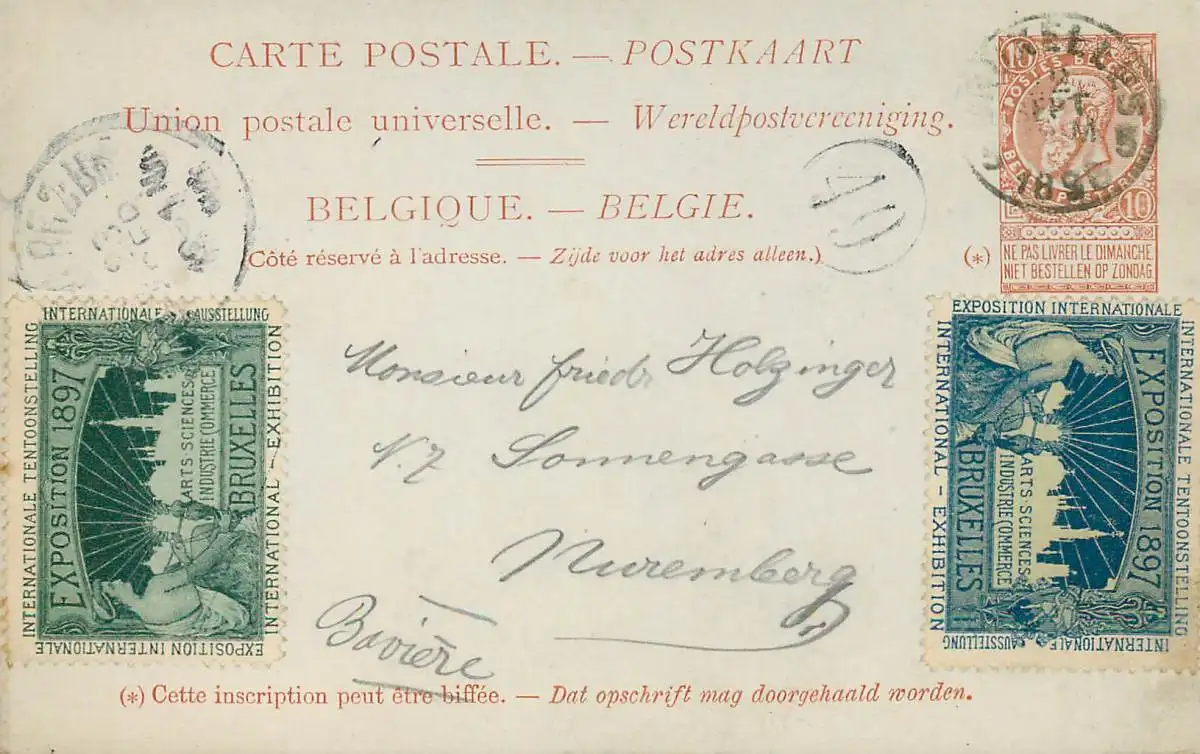 CARTE POSTALE. — POSTKAART
Union postale universelle. — Wereldpostvereeniging.
BELGIQUE. — BELGIE.
(Côté réservé à l'adresse. — Zijde voor het adres alleen.)
10 POSTES
10
(*) NE PAS LIVRER LE DIMANCHE
NIET BESTELLEN OP ZONDAG
SEPT
5
49
Monsieur friedr Holzinger
N. 7 Sonnengasse
Nuremberg
Bavière
INTERNATIONALE AUSSTELLUNG
INTERNATIONALE TENTOONSTELLING
INTERNATIONAL - EXHIBITION
EXPOSITION INTERNATIONALE
EXPOSITION 1897
ARTS SCIENCES
INDUSTRIE COMMERCE
BRUXELLES
EXPOSITION INTERNATIONALE
INTERNATIONALE TENTOONSTELLING
INTERNATIONAL - EXHIBITION
INTERNATIONALE AUSSTELLUNG
EXPOSITION 1897
ARTS - SCIENCES
INDUSTRIE COMMERCE
BRUXELLES
(*) Cette inscription peut être biffée. — Dat opschrift mag doorgehaald worden.